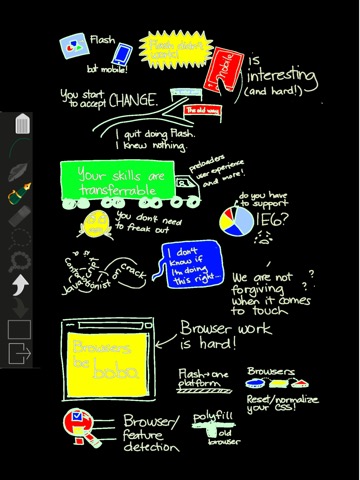 Flash
but mobile!
Flash didn't
Mobile
is
interesting
(and hard!)
You start
to accept CHANGE.
The old way
I quit doing Flash.
I knew nothing.
Your skills are
transferrable
preloaders
user experience
and more!
You don't need
to freak out
do you have
to support
IE6?
I don't
know if
I'm doing
this right...
on crack
We are not
forgiving
when it comes
to touch
? ? ?
Browsers
be
boba
Browser work
is hard!
Flash → one
platform
Browsers
Reset/normalize
your CSS!
Browser/
feature
detection
polyfill
old
browser